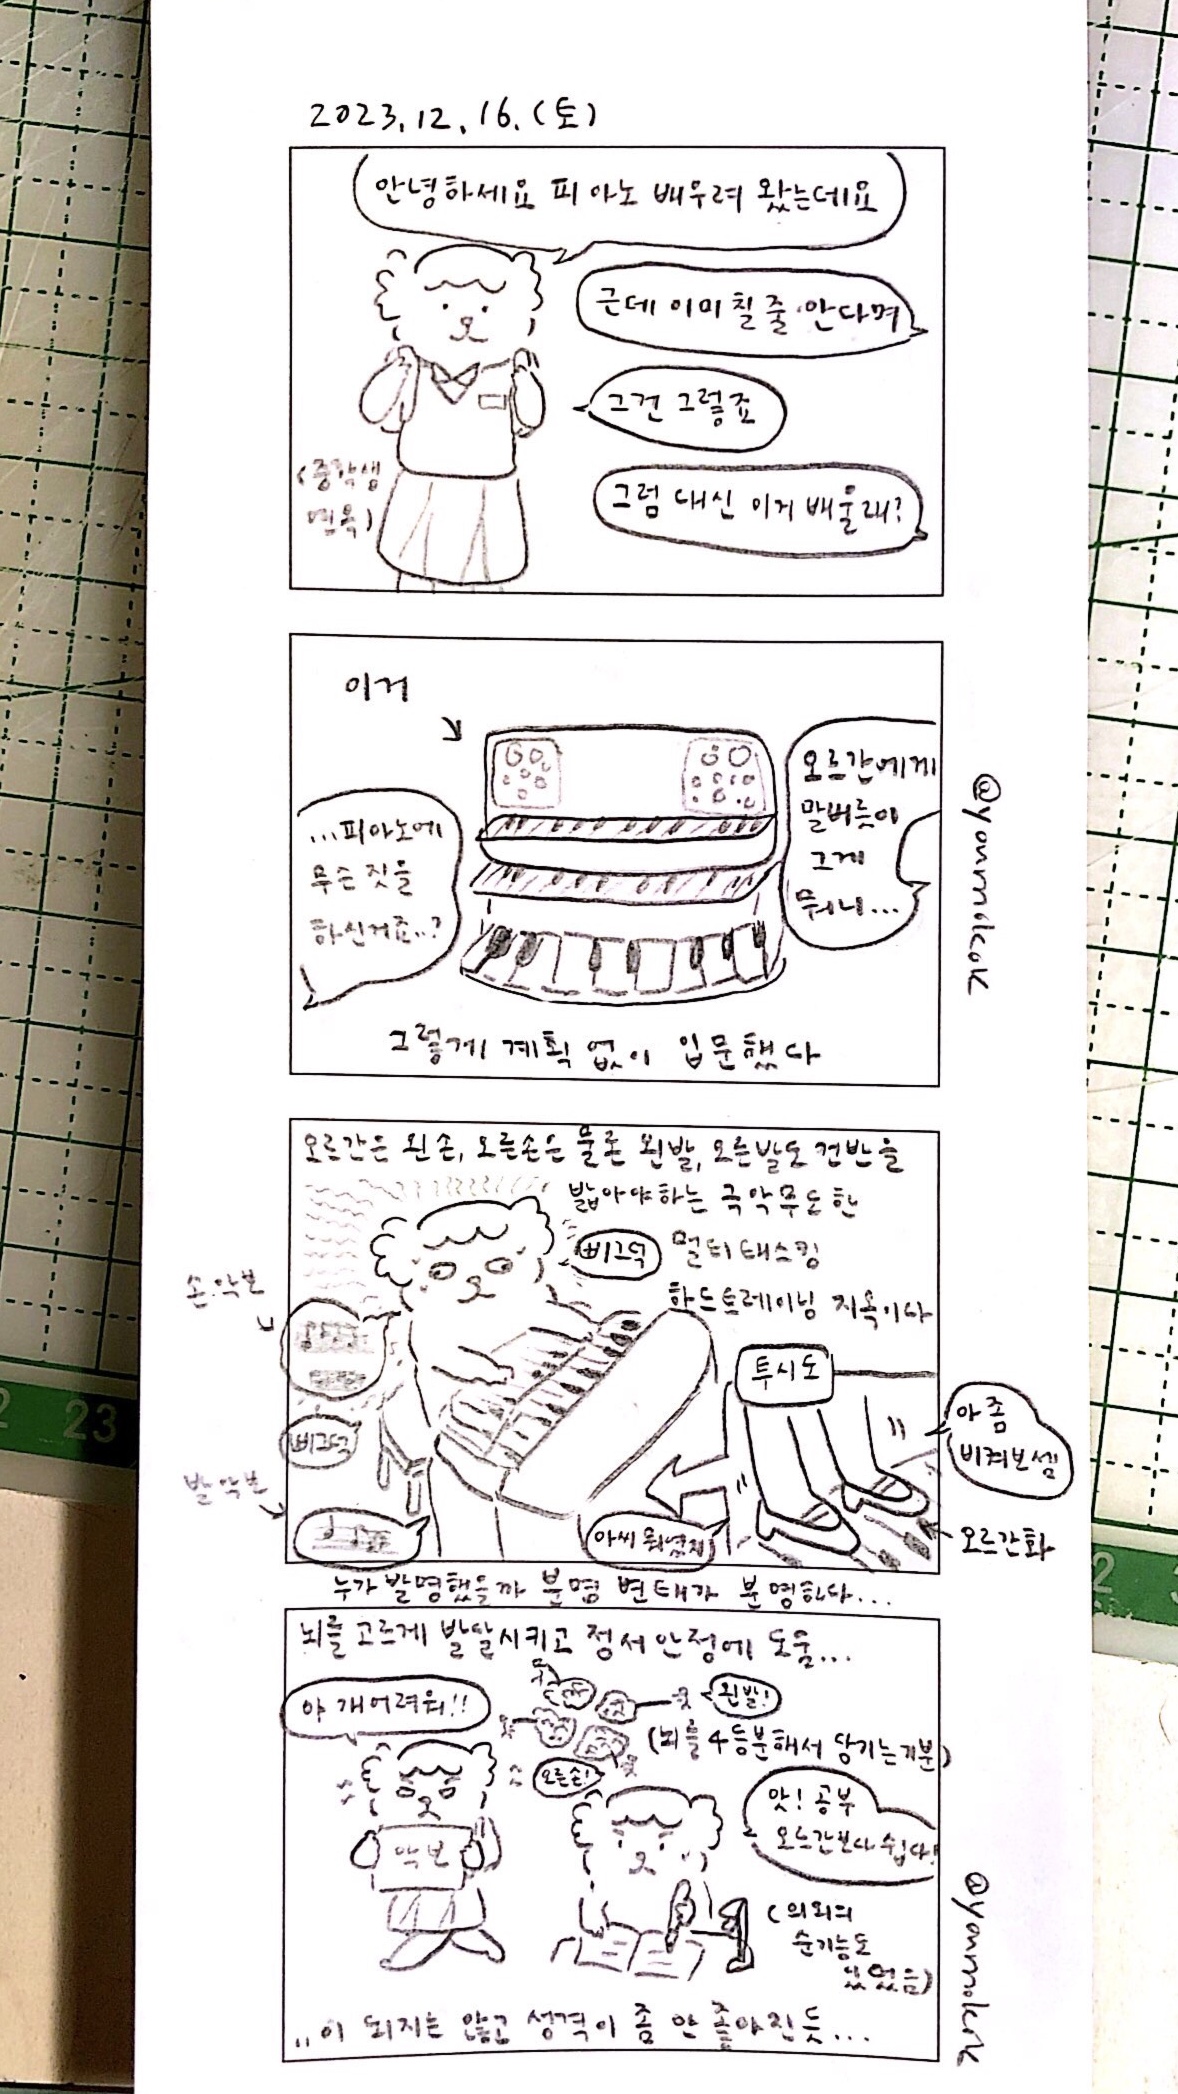 2023.12.16.(토)
안녕하세요 피아노 배우려 왔는데요
근데 이미 칠 줄 안다며
그건 그렇죠
그럼 대신 이거 배울래?
(중학생
연옥)
이거
오르간에게
말버릇이
그게
뭐니...
...피아노에
무슨 짓을
하신거죠..?
그렇게 계획 없이 입문했다
@yonmokok
오르간은 왼손, 오른손은 물론 왼발, 오른발도 건반을
밟아야하는 극악무도한
삐그덕
멀티태스킹
하드트레이닝 지옥이다
손악보
투시도
아 좀
비켜보셈
삐그덕
발악보
아씨 뭐였지
오르간화
누가 발명했을까 분명 변태가 분명하다...
뇌를 고르게 발달시키고 정서안정에 도움...
야 개어려워!!
왼발!
(뇌를 4등분해서 당기는기분)
오른손!
앗! 공부
오르간보다 쉽다!
악보
(의외의
순기능도
있었음)
..이 되지는 않고 성격이 좀 안 좋아진듯...